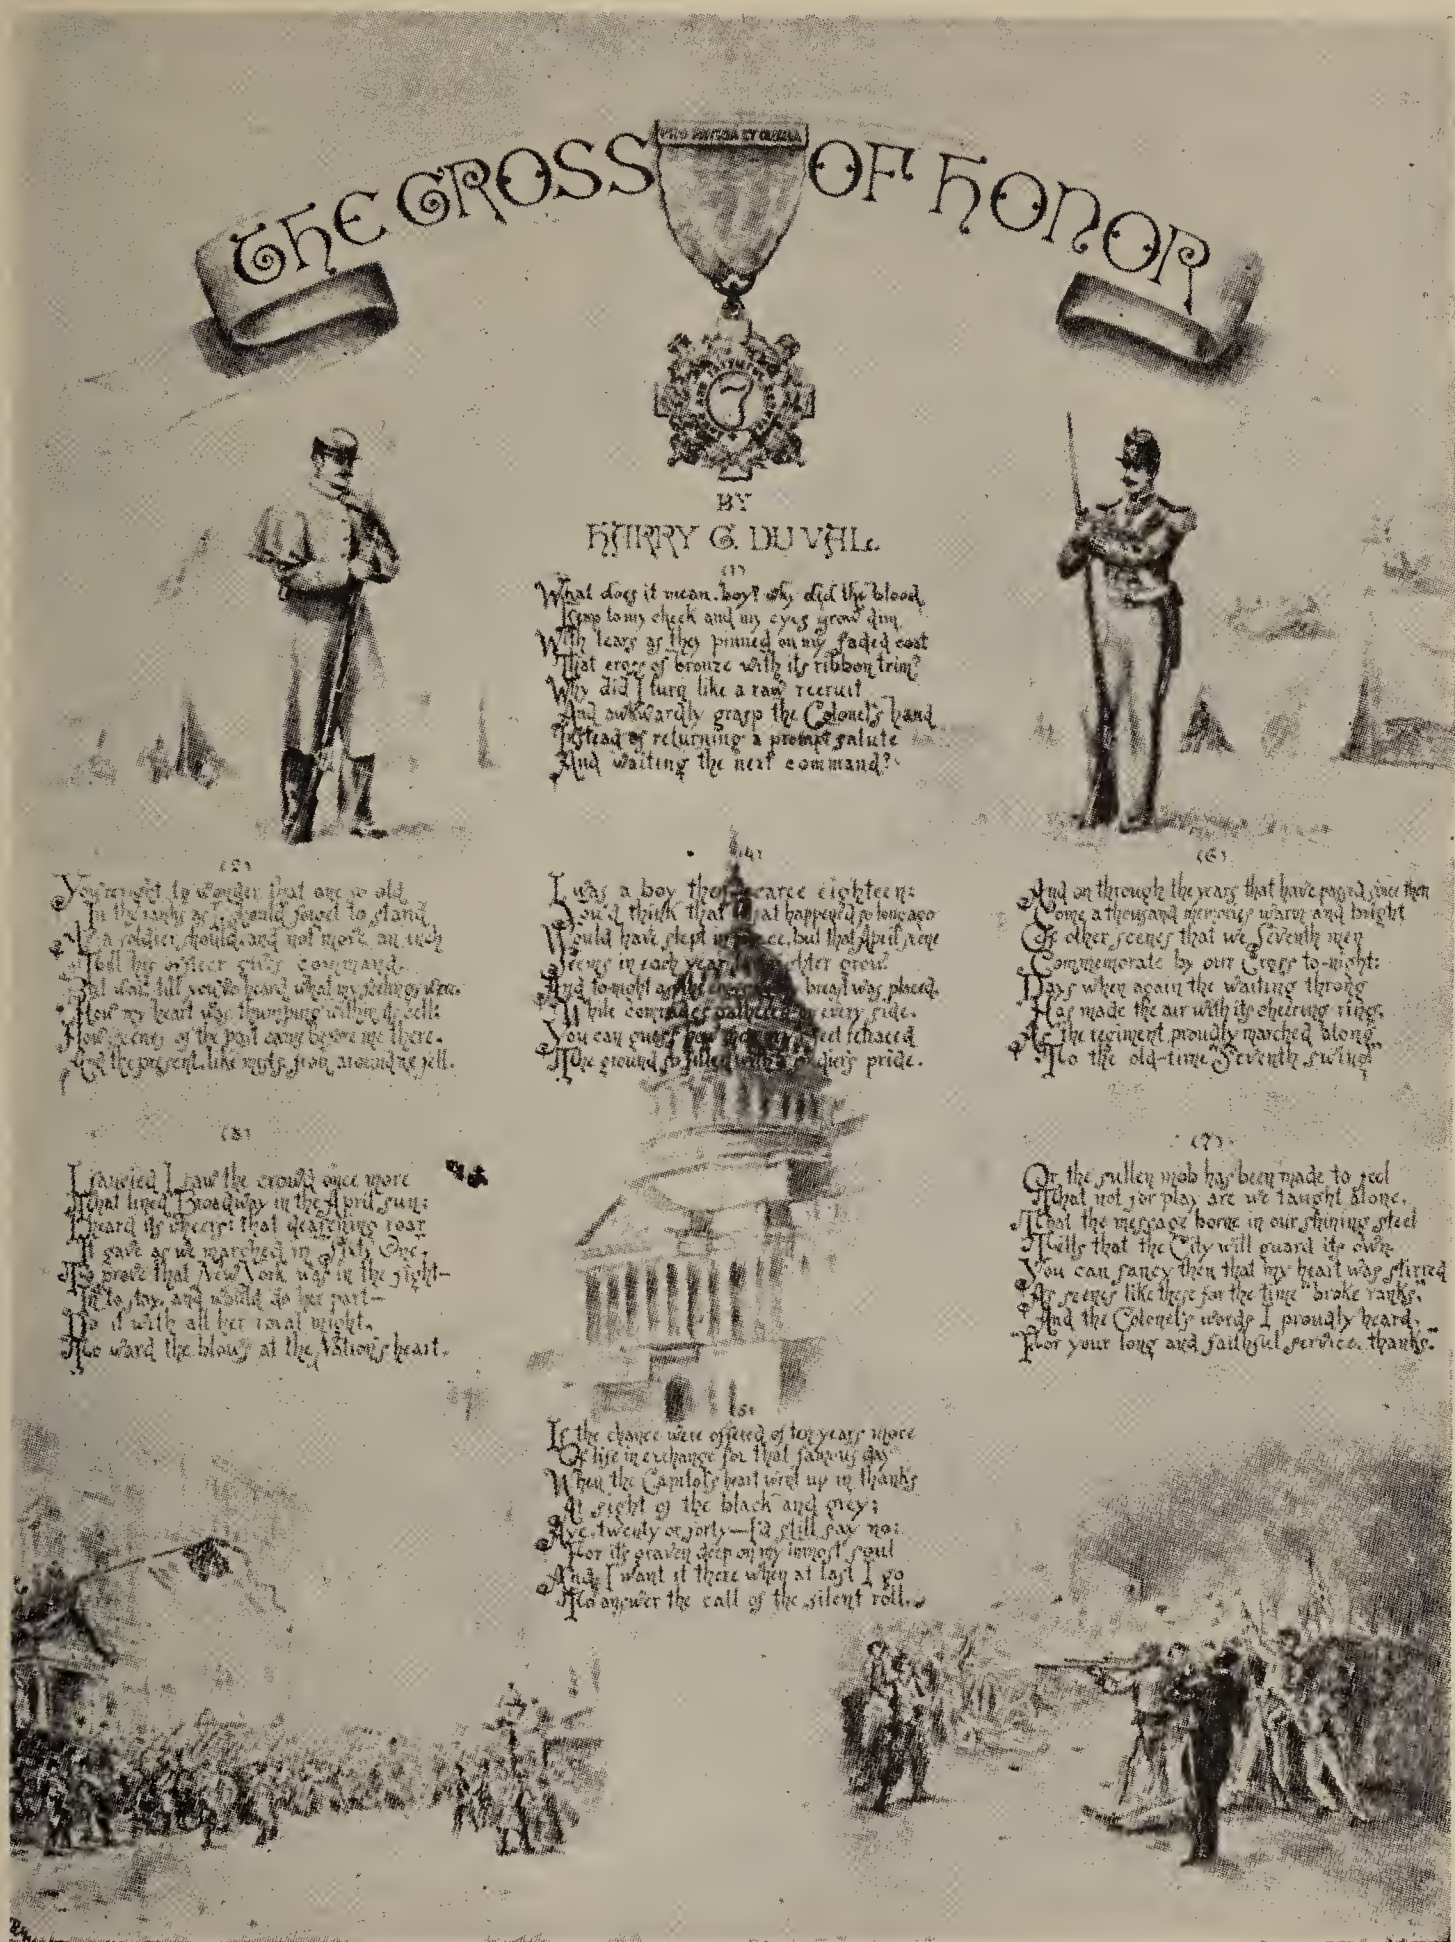 THE CROSS OF HONOR
PRO PATRIA ET GLORIA
7
BY
HARRY G. DUVAL.
(1)
What does it mean, boy? why did the blood
Leap to my cheek and my eyes grow dim
With tears as they pinned on my faded coat
That cross of bronze with its ribbon trim?
Why did I turn like a raw recruit
And awkwardly grasp the Colonel's hand
Instead of returning a prompt salute
And waiting the next command?
(2)
You're right to wonder that one so old
In the ranks as I should forget to stand
As a soldier should, and not move an inch
Till his officer gives command.
But wait till you've heard what my feelings were,
How my heart was thumping within its cell:
How scenes of the past came before me there,
And the present, like mists, from around me fell.
(3)
I fancied I saw the crowd once more
That lined Broadway in the April sun:
I heard its cheers: that deafening roar
It gave as we marched in Sixty One,
To prove that New York was in the fight—
In to stay, and would do her part—
Do it with all her royal might,
To ward the blows at the Nation's heart.
(4)
I was a boy then, scarce eighteen:
You'd think that what happened so long ago
Would have slept in peace, but that April scene
Seems in each year to brighter grow.
And to-night as the cross on my breast was placed,
While comrades gathered on every side,
You can guess how my feet retraced
The ground so filled with a soldier's pride.
(5)
If the chance were offered of ten years more
Of life in exchange for that famous day
When the Capitol's heart went up in thanks
At sight of the black and grey;
Aye, twenty or forty—I'd still say no:
For its graven deep on my inmost soul
And I want it there when at last I go
To answer the call of the silent roll.
(6)
And on through the years that have passed since then
Come a thousand memories warm and bright
Of other scenes that we Seventh men
Commemorate by our Cross to-night:
Days when again the waiting throng
Has made the air with its cheering ring,
As the regiment proudly marched along
To the old-time "Seventh swing."
(7)
Or the sullen mob has been made to feel
That not for play are we taught alone,
That the message borne in our shining steel
Tells that the City will guard its own.
You can fancy then that my heart was stirred
As scenes like these for the time "broke ranks,"
And the Colonel's words I proudly heard,
"For your long and faithful service, thanks."